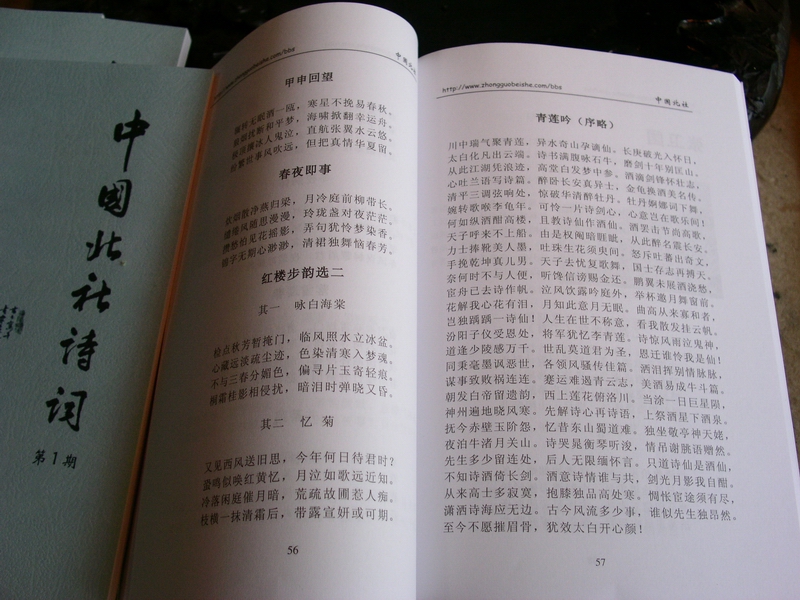 中國北社诗词
第1期
http://www.zhongguobeishe.com/bba
中国北社
甲申回望
寒星不挽易春秋。
海啸掀翻幸运舟。
直航张翼水云悠。
但把真情华夏留。
春夜即事
月冷庭前柳带长。
玲珑盏对夜茫茫。
弄句犹怜梦染香。
清裙独舞恼春芳。
红楼步韵选二
其一 咏白海棠
检点秋芳暂掩门，临风照水立冰盆。
心藏远淡疏尘迹，色染清寒入梦魂。
不与三春分媚色，偏寻片玉寄轻痕。
桐霜桂影相侵扰，暗泪时弹晓又昏。
其二 忆菊
又见西风送旧思，今年何日待君时？
蛩鸣似唤红黄忆，月泣如歌远近知。
冷落闲庭催月暗，荒疏故圃惹人痴。
枝横一抹清霜后，带露宣妍或可期。
56
http://www.zhongguobeishe.com/bba
中国北社
青莲吟（序略）
川中瑞气聚青莲，异水奇山孕谪仙。长庚破光入怀日，
太白化凡出云端。诗书满腹咏石牛，磨剑十年别匡山。
从此江湖凭浪迹，高堂白发梦中参。酒滴剑锋怀壮志，
心吐兰语写诗篇。醉卧长安真异士，金龟换酒美名传。
清平三调弦响处，惊破华清醉牡丹。牡丹婀娜词下舞，
婉转歌喉李龟年。可怜一片诗剑心，心意岂在歌乐间！
何如纵酒酣高楼，且教诗仙作酒仙。酒罢击节尚高歌，
天子呼来不上船。由是权阉暗睚眦，从此醉名震长安。
力士捧靴美人墨，吐珠生花须臾间。怒斥吐番出奇文，
手挽乾坤真儿男。天子去忧复歌舞，国士存志再搏天。
奈何时不与人便，听馋信谤赐金还。鹏翼未展酒浇愁，
宦舟已去诗作帆。泣风饮露吟窗外，举杯邀月舞窗前。
花解我心花有泪，月知此意月无眠。曲高从来寡和者，
岂独踽踽一诗仙！人生在世不称意，看我散发挂云帆。
汾阳子仪受恩处，将军犹忆李青莲。诗惊风雨泣鬼神，
道逢少陵感万千。世乱莫道君为圣，恩迁谁怜我是仙！
同秉毫墨讽恶世，各领风骚传佳篇。洒泪挥别情脉脉，
谋事致败祸连连。蹇运难遏青云志，美酒易成牛斗篇。
朝发白帝留遗韵，西上莲花俯洛川。当涂一日巨星陨，
神州遍地晓风寒。先解诗心再诗语，上祭酒星下酒泉。
抚今赤壁玉阶怨，忆昔东山蜀道难。独坐敬亭神天姥，
夜泊牛渚月关山。诗哭晁衡琴听浚，情吊谢朓语赠然。
先生多少留连处，后人无限缅怀言。只道诗仙是酒仙，
不知诗酒倚长剑。酒意诗情谁与共，剑光月影我自酣。
从来高士多寂寞，抱膝独品高处寒。惆怅宦途须有尽，
潇洒诗海应无边。古今风流多少事，谁似先生独昂然。
至今不愿摧眉骨，犹效太白开心颜！
57